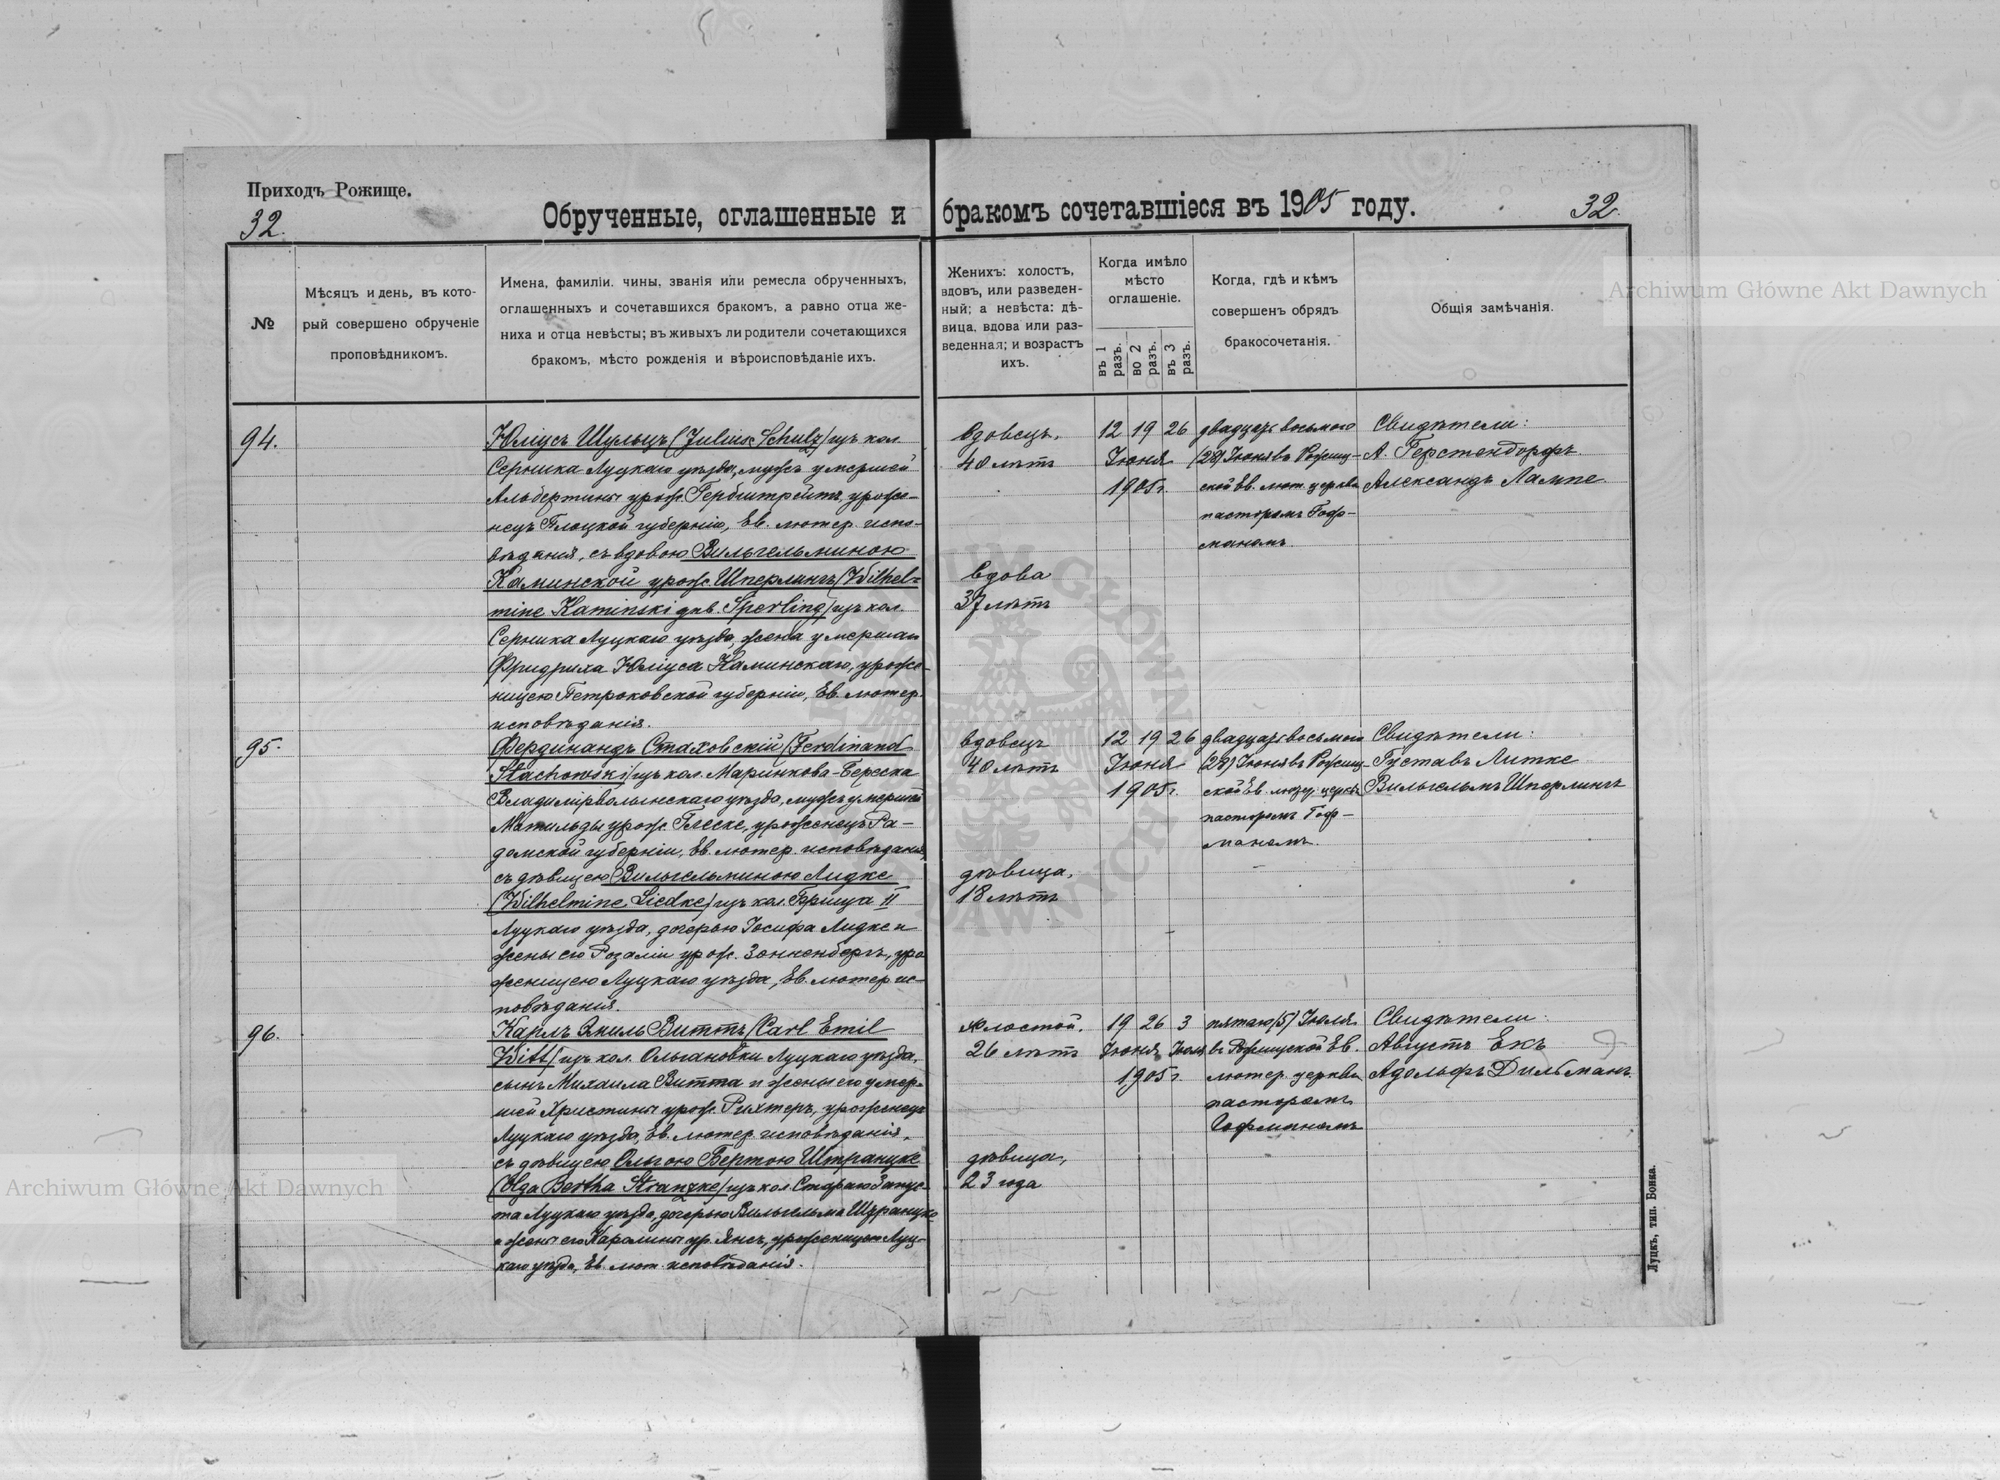 Приходъ Рожище.
32.
Обрученные, оглашенные и бракомъ сочетавшіеся въ 1905 году.
32.
№
Мѣсяцъ и день, въ кото-
рый совершено обрученіе
проповѣдникомъ.
Имена, фамиліи. чины, званія или ремесла обрученныхъ,
оглашенныхъ и сочетавшихся бракомъ, а равно отца же-
ниха и отца невѣсты; въ живыхъ ли родители сочетающихся
бракомъ, мѣсто рожденія и вѣроисповѣданіе ихъ.
Женихъ: холостъ,
вдовъ, или разведен-
ный; а невѣста: дѣ-
вица, вдова или раз-
веденная; и возрастъ
ихъ.
Когда имѣло
мѣсто
оглашеніе.
въ 1 разъ.
во 2 разъ.
въ 3 разъ.
Когда, гдѣ и кѣмъ
совершенъ обрядъ
бракосочетанія.
Общія замѣчанія.
94.
Юліусъ Шульцъ (Julius Schulz) изъ кол.
Серника Луцкаго уѣзда, мужъ умершей
Альбертины урож. Гербштрейтъ, уроже-
нецъ Плоцкой губерніи, Ев. лютер. испо-
вѣданія, съ вдовою Вильгельминою
Каминской урож. Шперлингъ (Wilhel-
mine Kaminski geb. Sperling) изъ кол.
Серника Луцкаго уѣзда, жена умершаго
Фридриха Юліуса Каминскаго, уроже-
ницею Петроковской губерніи, Ев. лютер.
исповѣданія.
вдовецъ,
40 лѣтъ
вдова
37 лѣтъ
12 19 26
Іюня
1905 г.
двадцать восьмого
(28) Іюня въ Рожищ-
ской Ев. лют. церкви
пасторомъ Гоф-
маномъ.
Свидѣтели:
А. Герстендорфъ.
Александъ Лампе
95.
Фердинандъ Стаховскій (Ferdinand
Stachowski) изъ кол. Маринкова-Береска
Владимірволынскаго уѣзда, мужъ умершей
Матильды урож. Глеске, уроженецъ Ра-
домской губерніи, Ев. лютер. исповѣданія,
съ дѣвицею Вильгельминою Лидке
(Wilhelmine Liedke) изъ кол. II
Луцкаго уѣзда, дочерью Іосифа Лидке и
жены его Розаліи урож. Зонненбергъ, уро
женицею Луцкаго уѣзда, Ев. лютер. ис-
повѣданія.
вдовецъ
40 лѣтъ
дѣвица,
18 лѣтъ
12 19 26
Іюня
1905 г.
двадцать восьмого
(28) Іюня въ Рожищ-
ской Ев. лютер. церкви
пасторомъ Гоф-
маномъ.
Свидѣтели:
Густавъ Литке
Вильгельмъ Шперлингъ
96.
Карлъ Эмиль Виттъ (Carl Emil
Witt) изъ кол. Ольгановки Луцкаго уѣзда,
сынъ Михаила Витта и жены его умер-
шей Христины урож. Рихтеръ, уроженецъ
Луцкаго уѣзда, Ев. лютер. исповѣданія,
съ дѣвицею Ольгою Бертою Штранцке
(Olga Bertha Stranzke) изъ кол. Старая Запус-
та Луцкаго уѣзда, дочерью Вильгельма Штранцке
и жены его Каролины ур. Янсъ, уроженицею Луц-
каго уѣзда, Ев. лют. исповѣданія.
холостой.
26 лѣтъ
дѣвица,
23 года
19 26 3
Іюня Іюля
1905 г.
пятаго (5) Іюля
въ Рожищской Ев.
лютер. церкви
пасторомъ
Гофманомъ
Свидѣтели:
Августъ Екъ
Адольфъ Дильманъ.
Луцкъ, тип. Бонка.
Archiwum Główne Akt Dawnych
Archiwum Główne Akt Dawnych